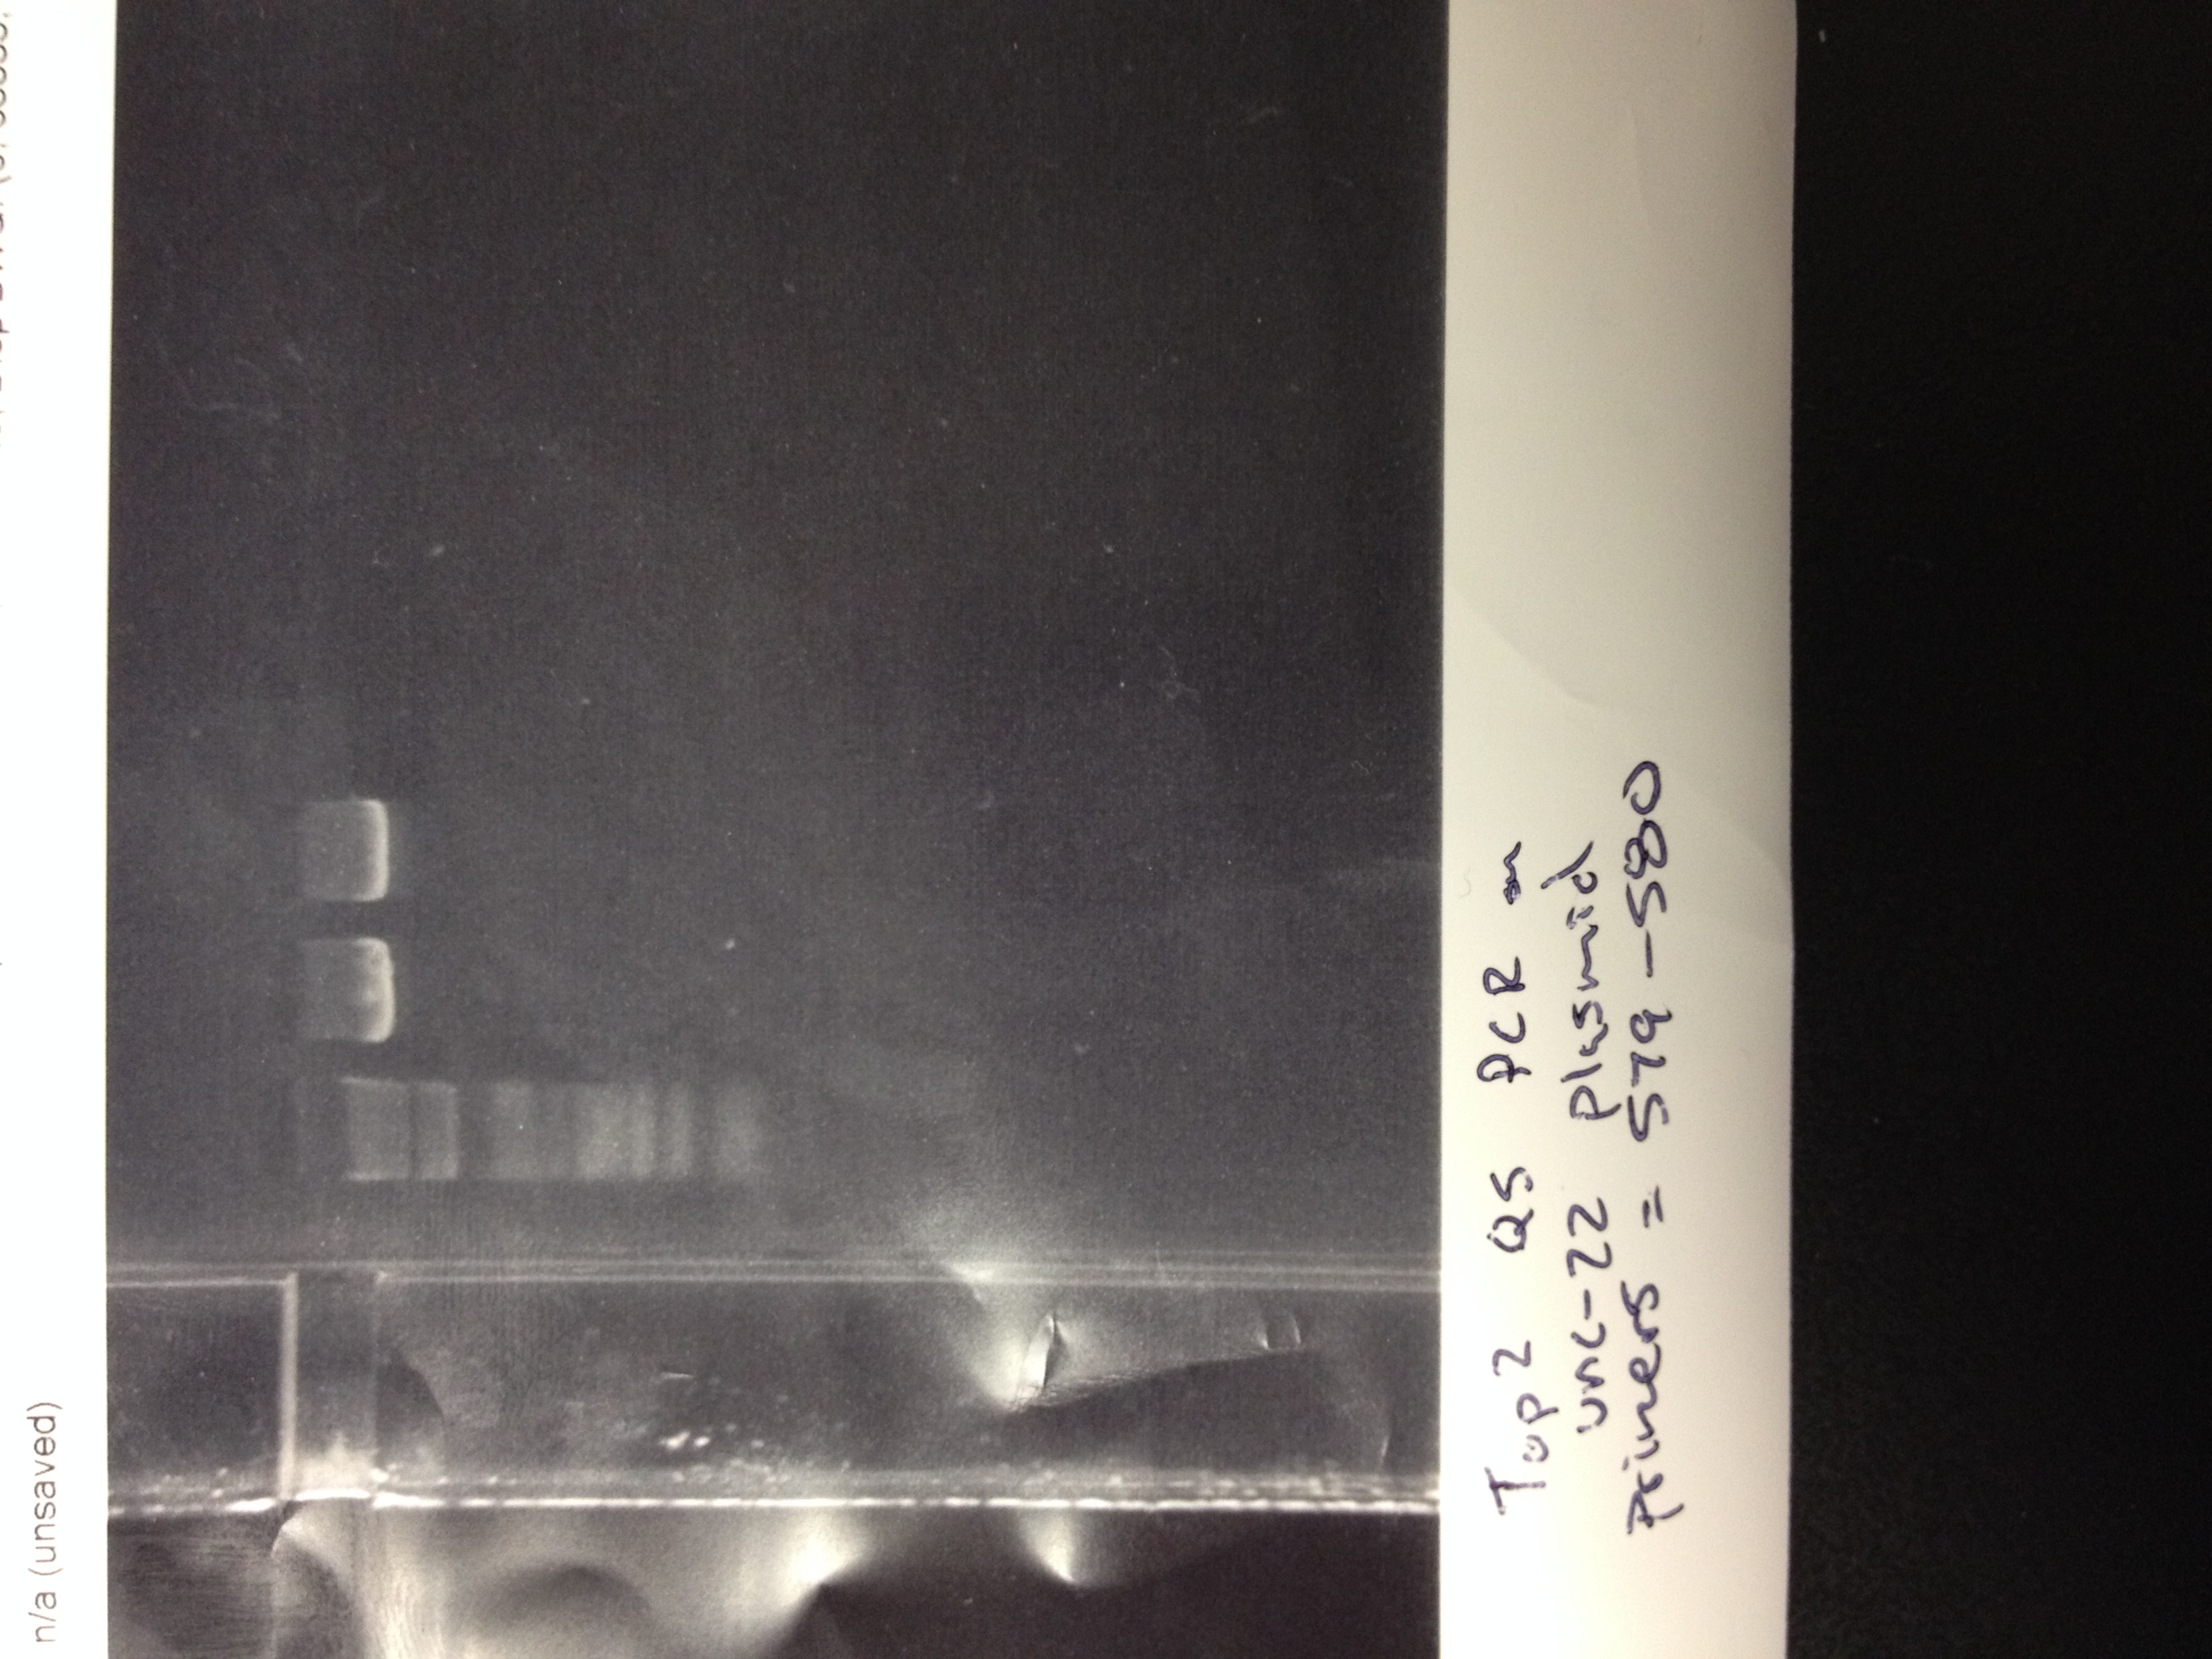 n/a (unsaved)
Top2 Q5 PCR on
unc-22 plasmid
Primers = 579-580